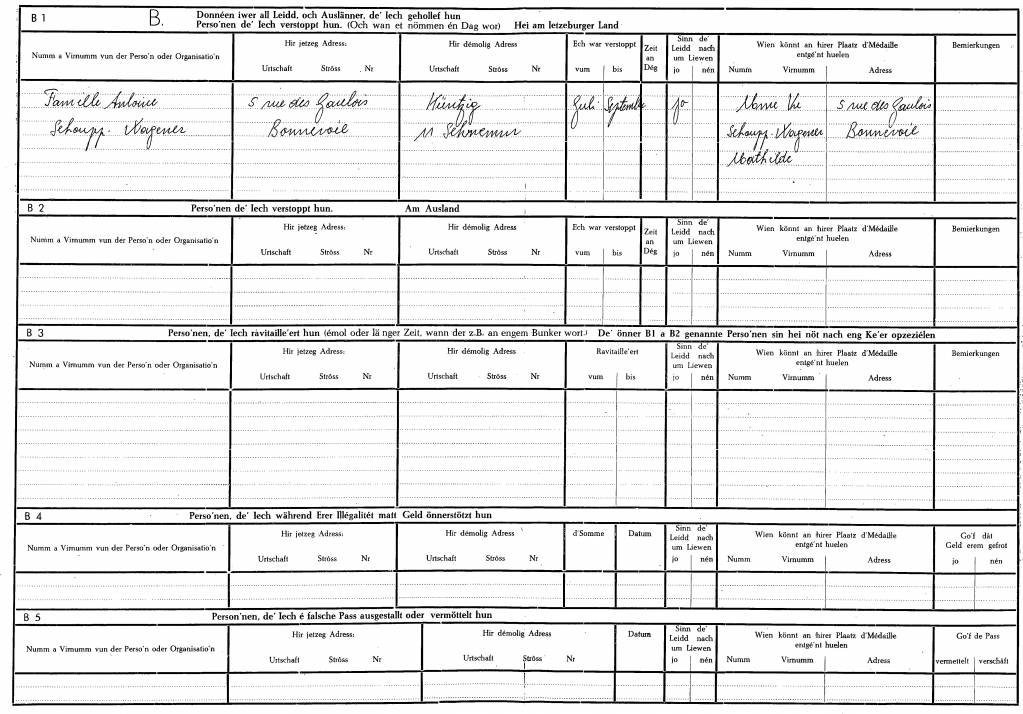 B 1 B. Donnéen iwer all Leidd, och Auslänner, de' Iech gehollef hun
Perso'nen de' Iech verstoppt hun. (Och wan et nömmen én Dag wor) Hei am letzeburger Land
Numm a Virnumm vun der Perso'n oder Organisatio'n
Hir jetzeg Adress:
Urtschaft Ströss Nr
Hir démolig Adress
Urtschaft Ströss Nr
Ech war verstoppt
vum bis
Zeit
an
Dég
Sinn de'
Leidd nach
um Liewen
jo nén
Wien könnt an hirer Plaatz d'Médaille
entgé'nt huelen
Numm Virnumm Adress
Bemierkungen
Famille Antoine 5 rue des Gaulois Juli Septembe jo Mme Ve 5 rue des Gaulois
Schaupp-Wagener Bonnevoie 11 Schaupp-Wagener Bonnevoie
Mathilde
B 2 Perso'nen de' Iech verstoppt hun. Am Ausland
Numm a Virnumm vun der Perso'n oder Organisatio'n
Hir jetzeg Adress:
Urtschaft Ströss Nr
Hir démolig Adress
Urtschaft Ströss Nr
Ech war verstoppt
vum bis
Zeit
an
Dég
Sinn de'
Leidd nach
um Liewen
jo nén
Wien könnt an hirer Plaatz d'Médaille
entgé'nt huelen
Numm Virnumm Adress
Bemierkungen
B 3 Perso'nen, de' Iech ràvitaille'ert hun (émol oder länger Zeit, wann der z.B. an engem Bunker wort.) De' önner B1 a B2 genannte Perso'nen sin hei nöt nach eng Ke'er opzeziélen
Numm a Virnumm vun der Perso'n oder Organisatio'n
Hir jetzeg Adress:
Urtschaft Ströss Nr
Hir démolig Adress
Urtschaft Ströss Nr
Ravitaille'ert
vum bis
Sinn de'
Leidd nach
um Liewen
jo nén
Wien könnt an hirer Plaatz d'Médaille
entgé'nt huelen
Numm Virnumm Adress
Bemierkungen
B 4 Perso'nen, de' Iech während Erer Illégalitét matt Geld önnerstötzt hun
Numm a Virnumm vun der Perso'n oder Organisatio'n
Hir jetzeg Adress:
Urtschaft Ströss Nr
Hir démolig Adress
Urtschaft Ströss Nr
d'Somme
Datum
Sinn de'
Leidd nach
um Liewen
jo nén
Wien könnt an hirer Plaatz d'Médaille
entgé'nt huelen
Numm Virnumm Adress
Go'f dât
Geld erem gefrot
jo nén
B 5 Person'nen, de' Iech é falsche Pass ausgestallt oder vermöttelt hun
Numm a Virnumm vun der Perso'n oder Organisatio'n
Hir jetzeg Adress:
Urtschaft Ströss Nr
Hir démolig Adress
Urtschaft Ströss Nr
Datum
Sinn de'
Leidd nach
um Liewen
jo nén
Wien könnt an hirer Plaatz d'Médaille
entgé'nt huelen
Numm Virnumm Adress
Go'f de Pass
vermettelt verschâft